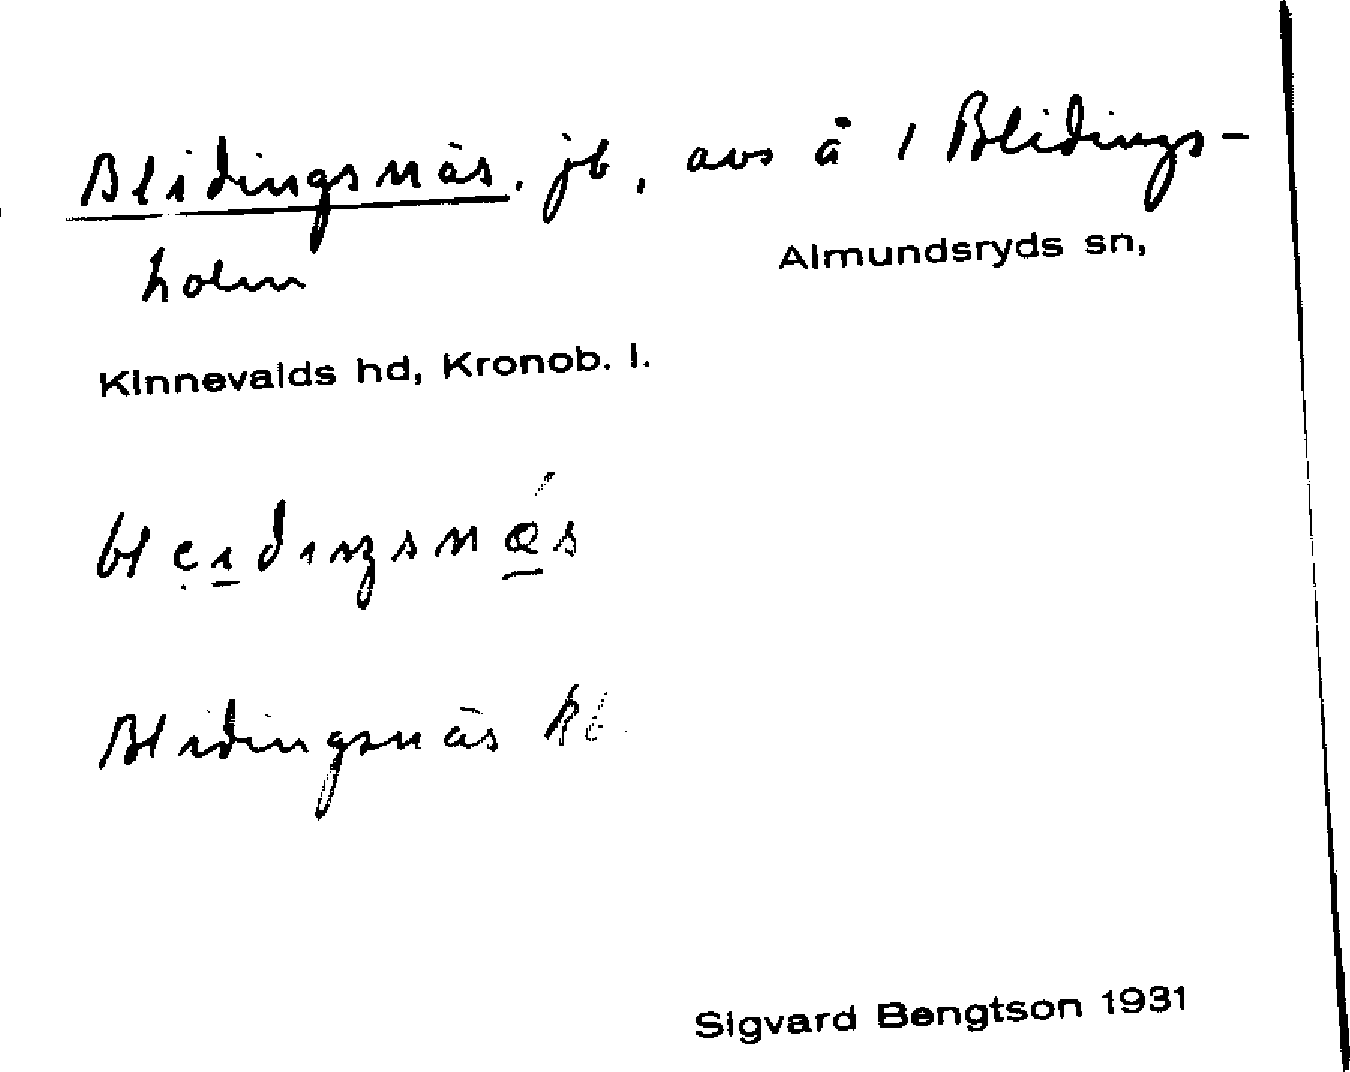 Blidingsnäs. jb, avs å 1 Blidings-
holm
Almundsryds sn,
Kinnevalds hd, Kronob. l.
Blidingsnäs kb
Sigvard Bengtson 1931